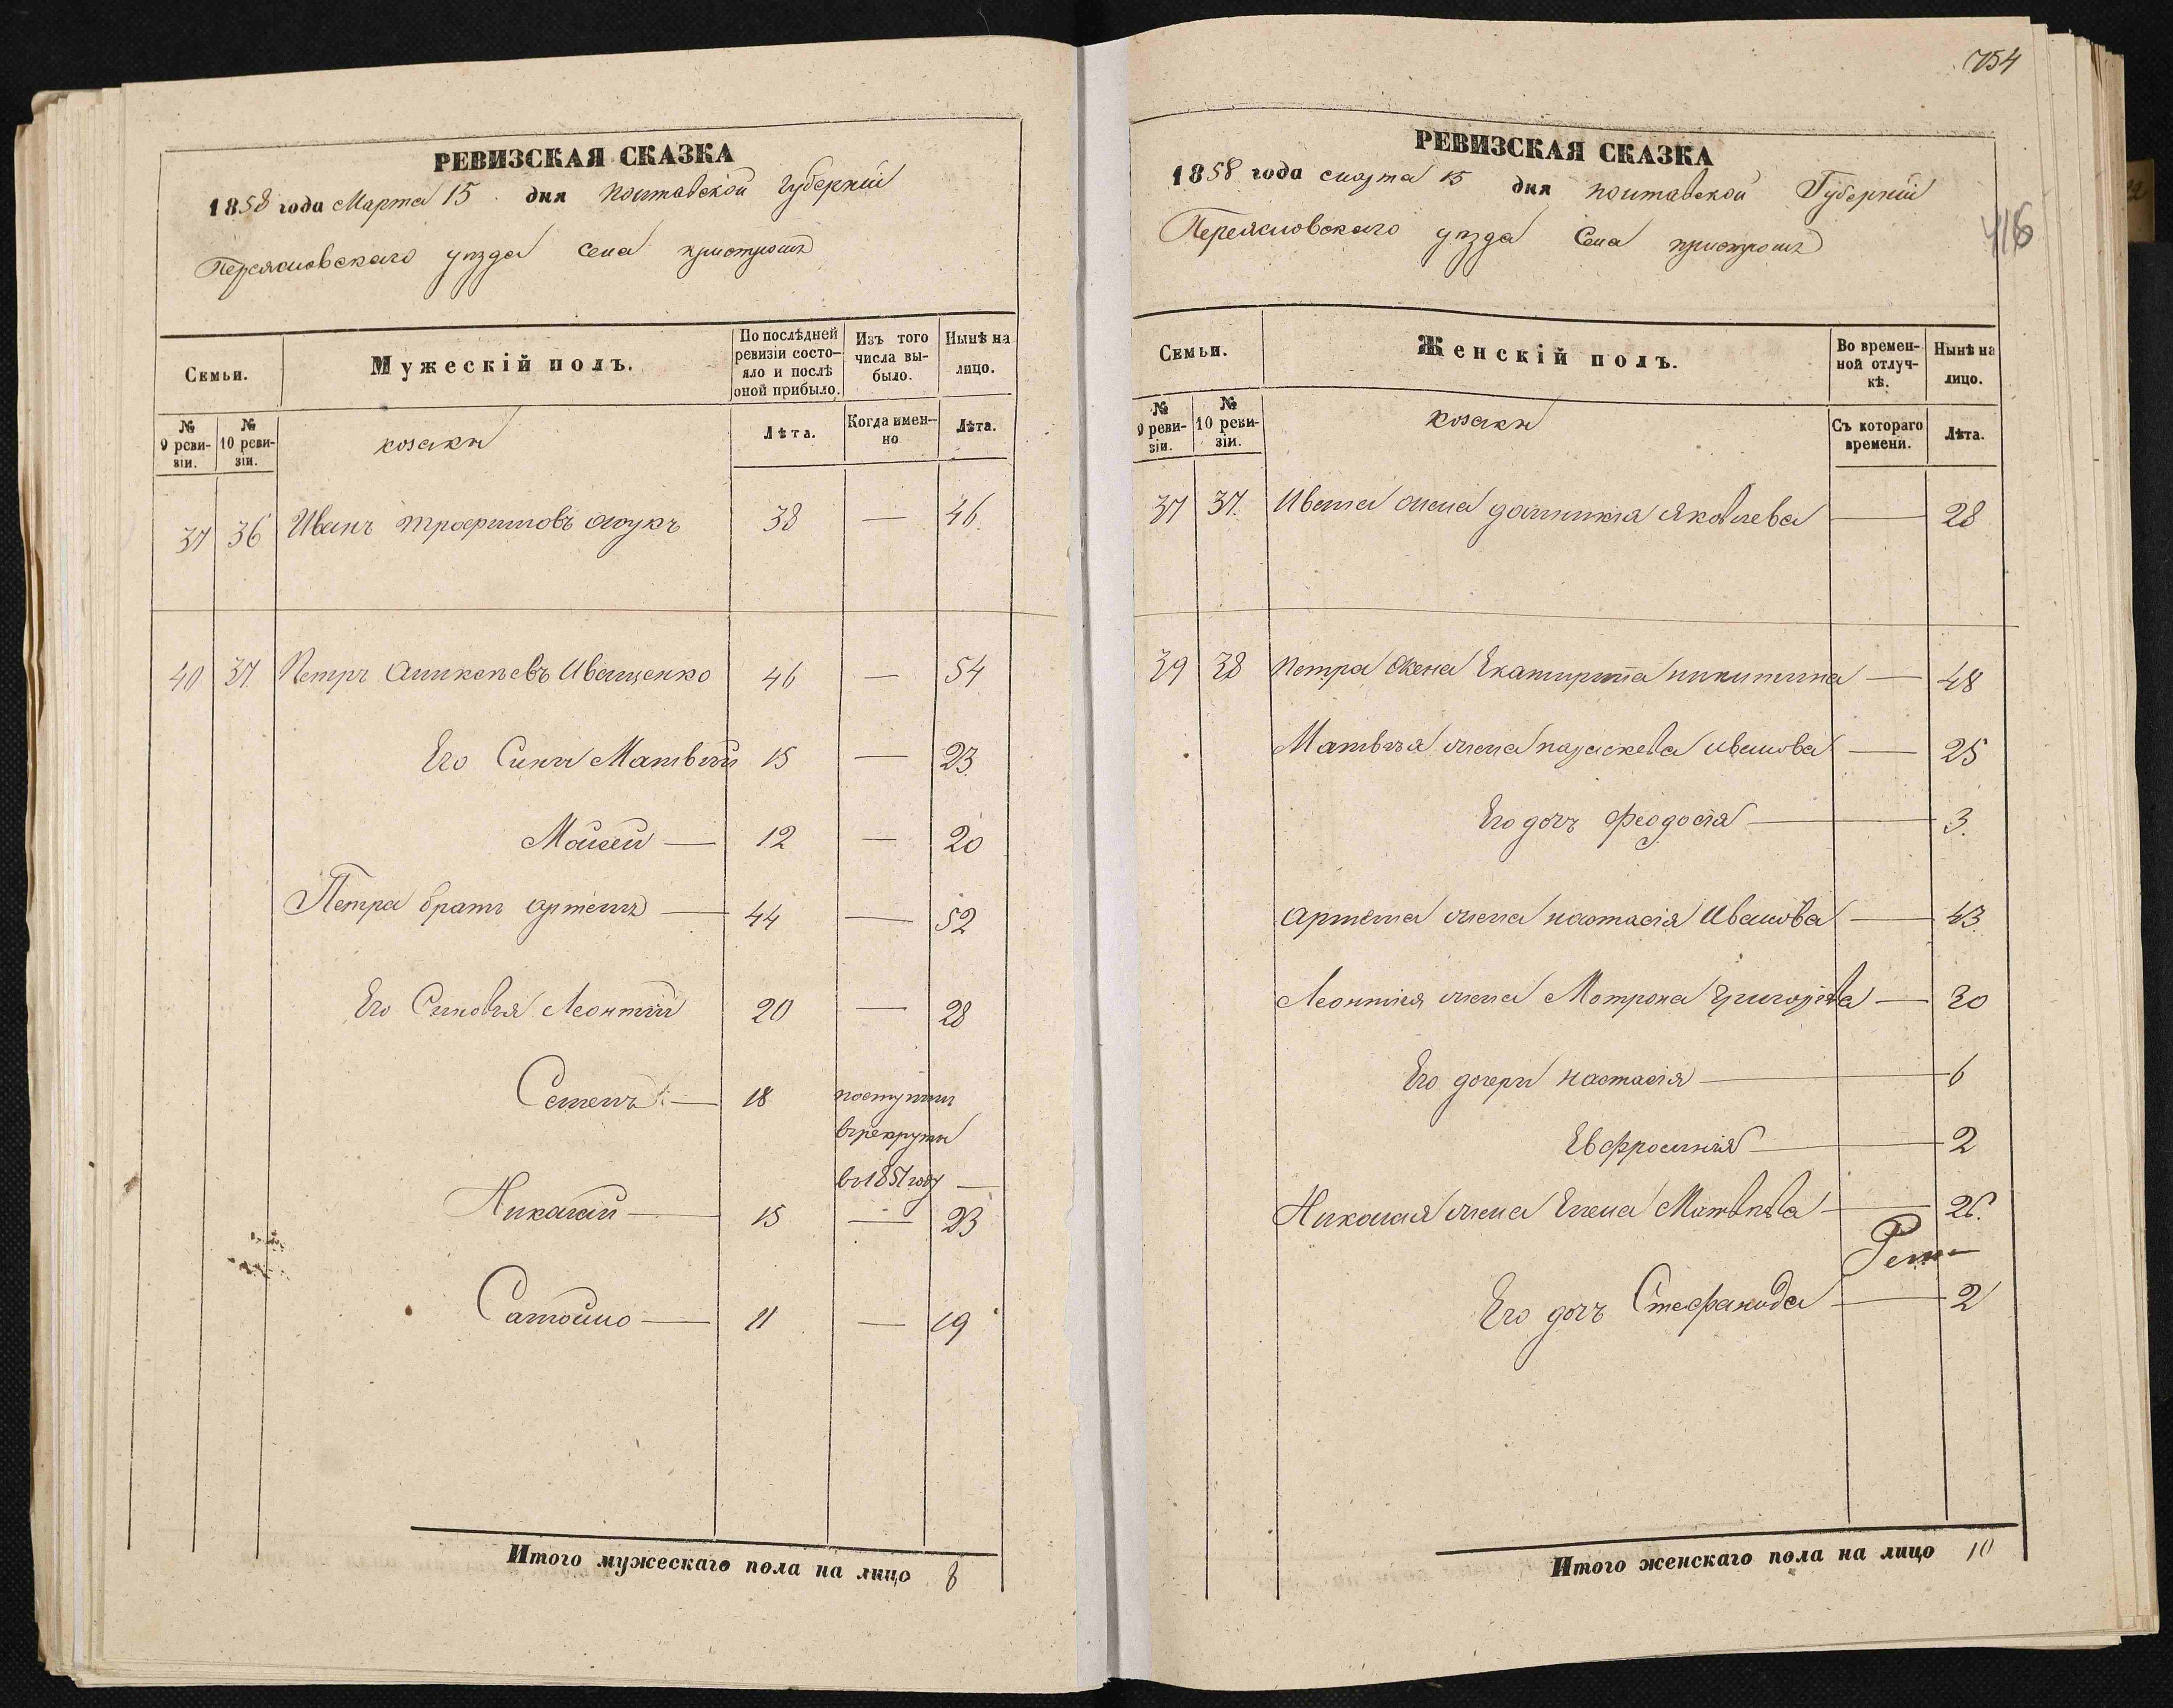 РЕВИЗСКАЯ СКАЗКА
1858 года Марта 15 дня полтавской Губерніи
Переясловскаго уѣзда Села пристромъ
Семьи.
Мужескій полъ.
По послѣдней ревизіи состояло и послѣ оной прибыло.
Изъ того числа выбыло.
Нынѣ на лицо.
№ 9 ревизіи.
№ 10 ревизіи.
козаки
Лѣта.
Когда именно
Лѣта.
37 36 Иванъ трофимовъ 38 — 46.
40 37. Петръ Аликсѣевъ Иващенко 46 — 54
Его Сыны Матвѣй 15 — 23.
Мойсей — 12 — 20
Петра братъ артемъ — 44 — 52
Его Сыновья Леонтій 20 — 28
Семенъ — 18 поступилъ
въ рекруты
въ 1851 году —
Николай — 15 — 23
Самойло — 11 — 19
Итого мужескаго пола на лицо 8
754
РЕВИЗСКАЯ СКАЗКА
1858 года марта 15 дня полтавской Губерніи
Переясловскаго уѣзда Села пристромъ
416
Семьи.
Женскій полъ.
Во временной отлучкѣ.
Нынѣ на лицо.
№ 9 ревизіи.
№ 10 ревизіи.
козаки
Съ котораго времени.
Лѣта.
37 37. Ивана жена домникія яковлева — 28
39 38 Петра жена Екатирина никитина — 48
Матвѣя жена параскева иванова — 25
Его дочь феодосія — 3.
Артема жена настасія Иванова — 43.
Леонтія жена Мотрона григорѣва — 30
Его дочери настасія — 6
Евфросинія — 2
Николая жена Елена Матвѣева — 26.
Его дочь Стефанида — 2
Итого женскаго пола на лицо 10